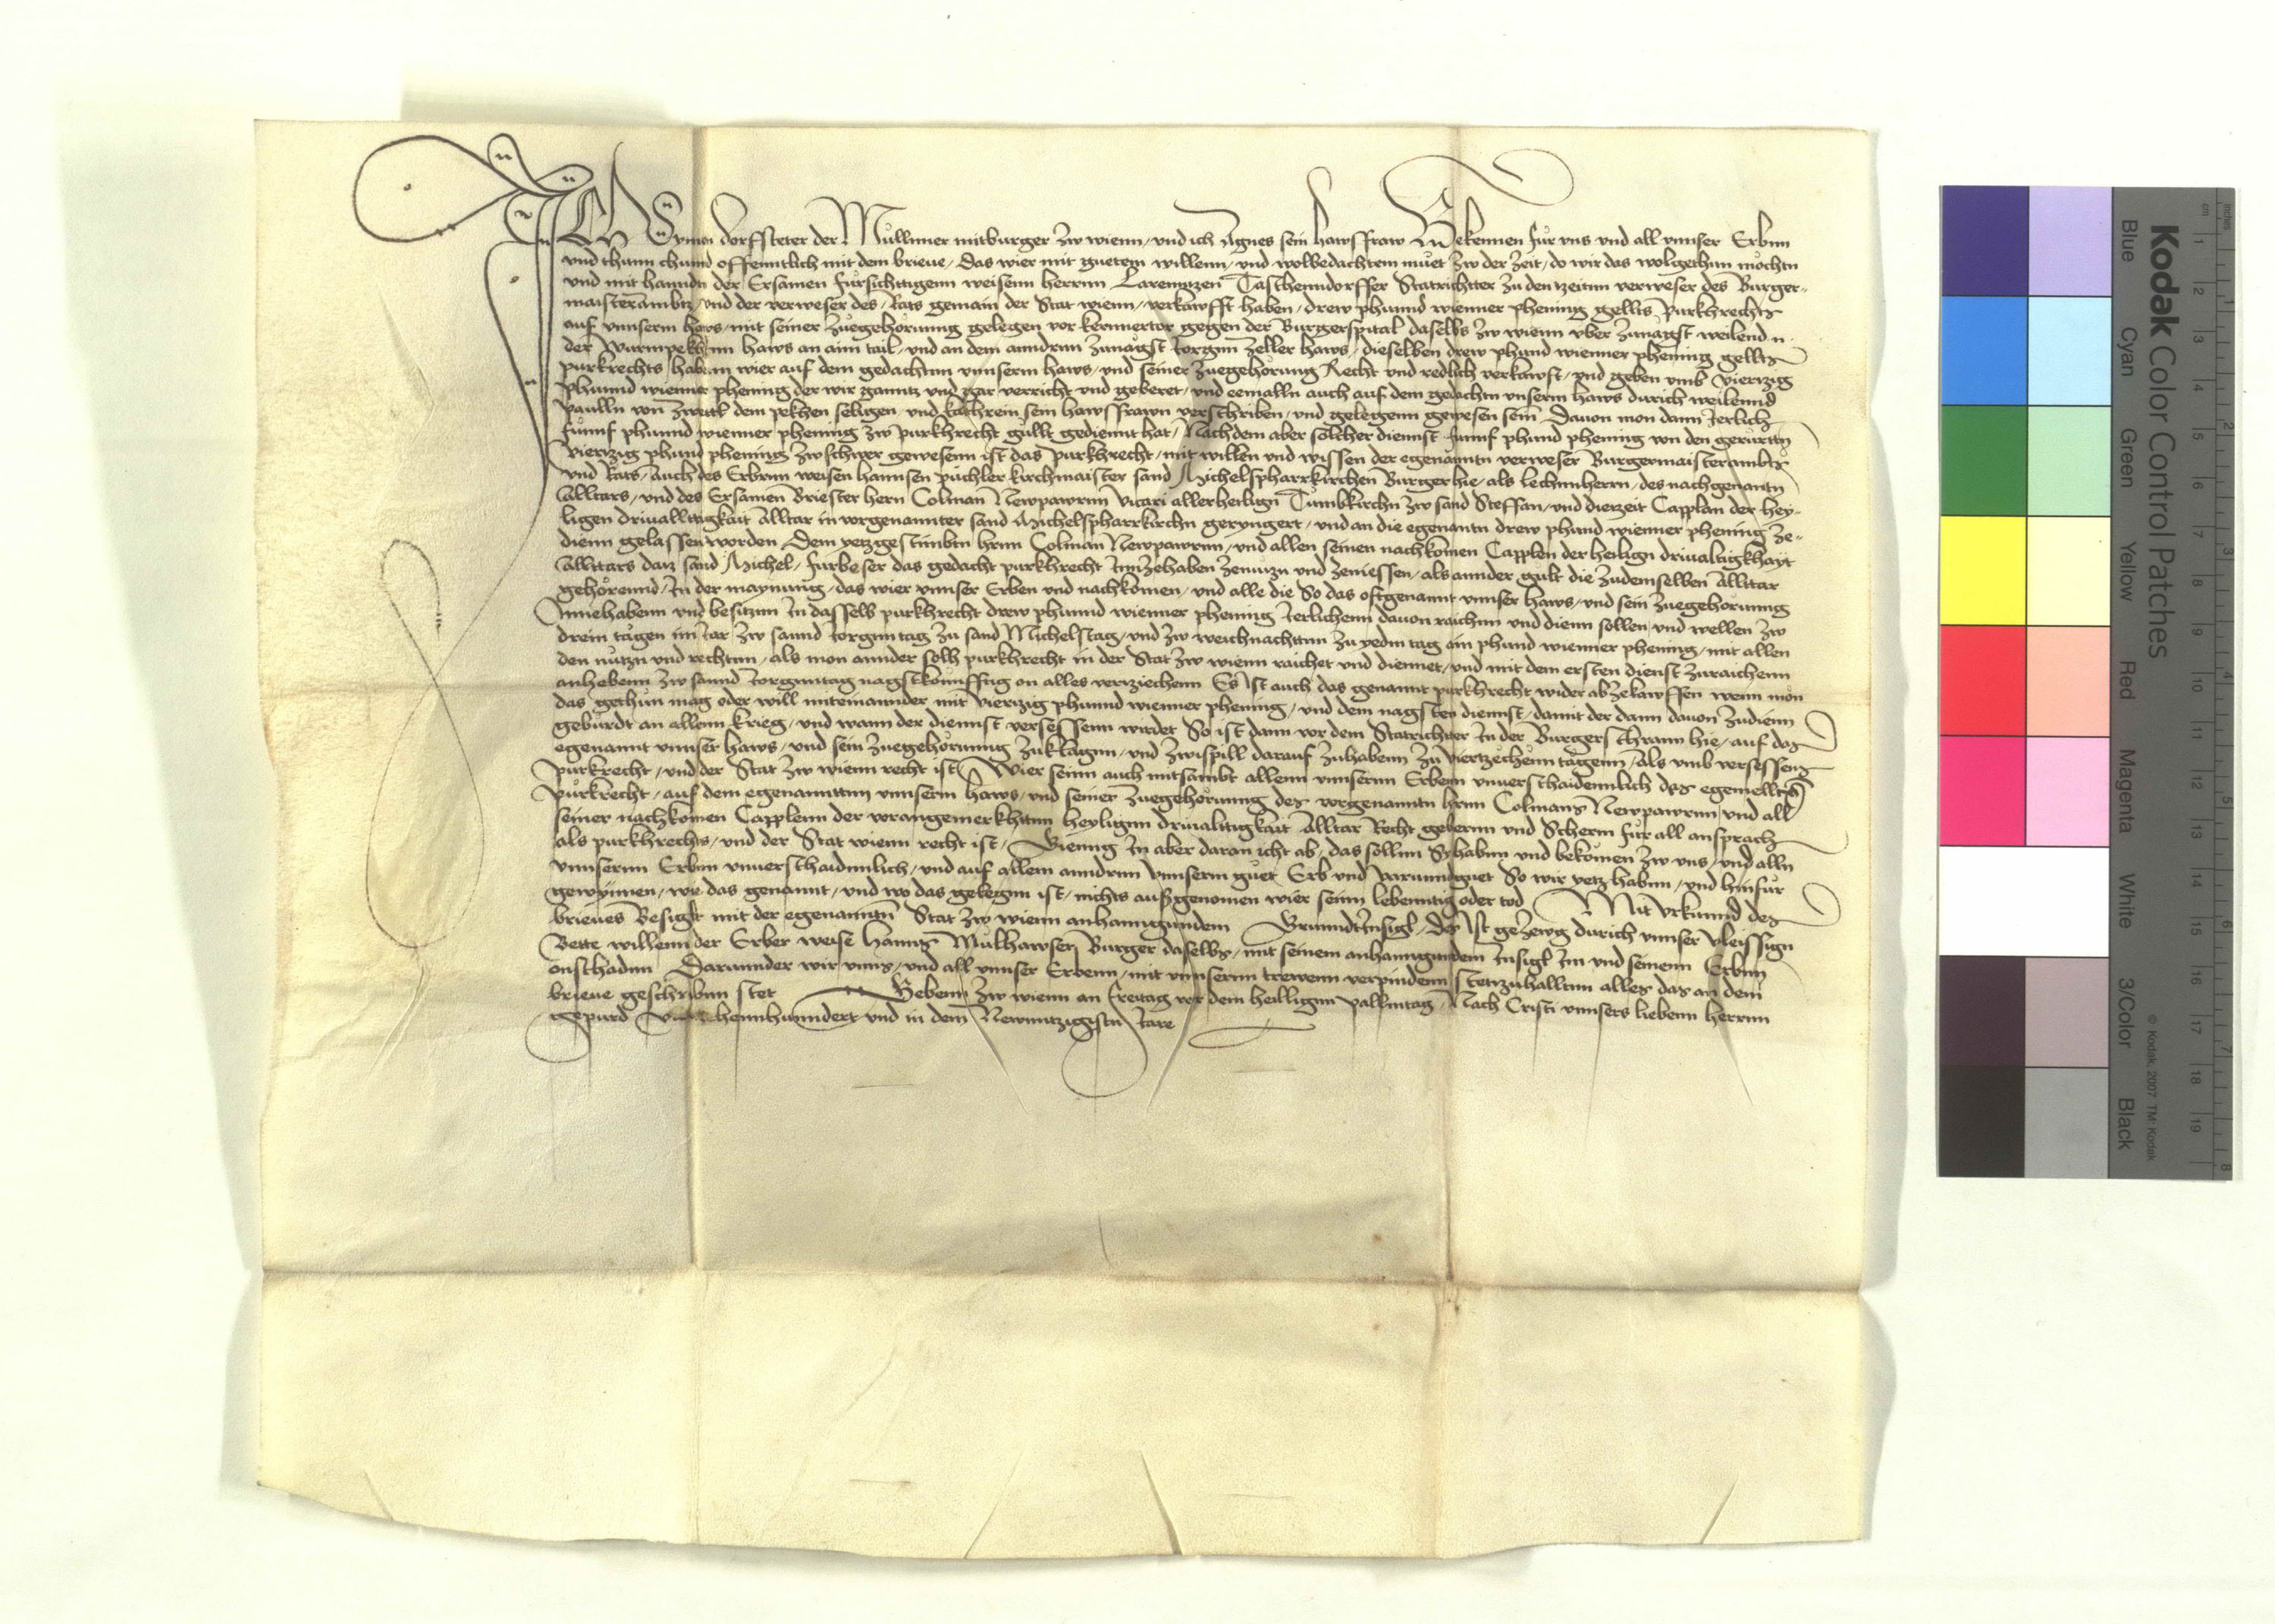 Ich Symon dorfsteter der Müllnner mitburger zw wienn / und ich Agnes sein hawsfraw Bekennen für uns und all unnser Erbnn
und thunn chunnd offenntlich mit dem brieve / Das wier mit guetem willenn / und wolbedachtem muet zw der zeit / do wir das wolgethun mochtn
und mit hanndn der Ersamen fürsichttigenn weisenn herrnn Larenntzen Taschenndorffer Statrichtter zu den tzeitnn verweser des Burger-
maisterambts / und der verweser des Rats gemain der Stat wienn / verkawfft haben / drew phunnd wienner phening gelltz purkhrechts
auf unnserm haws / mit seiner zuegehörunng gelegen vor kernnertor gegen der Burgerspital daselbs zw wienn uber zunagst weilend n.
der wurmpekhinn haws an aim tail / und an dem anndrnn zunagst Jorgnn zeller haws / dieselben drew phund wienner phennig gelltz
purkrechts habenn wier auf dem gedachtnn unnserm haws / und seiner zuegehörung Recht und redlich verkawft / und geben umb viertzig
phunnd wienner phening der wir ganntz und gar verricht und geweret / und eemalln auch auf dem gedachtn unserm haws durich weilennd
paulln von zwettl dem pekhen seligen / und kathrein sein hawsfrawn verschriben / und gelegenn gewesen sein Davon mon dann Jerlich
fünnf phunnd wienner phening zw purkhrecht güllt gediennt hat / Nachdem aber solcher diennst fünnf phund phening von den gerürttn
viertzig phund phening zw schwer gewesenn ist das purkhrecht / mit willen und wissen der egenanntn verweser Burgermaisterambts
und Rats / auch des Erbrnn weisen hannsen püchler kirchmaister sand Michelspharrkirchen Burger hie / als lechennherrn / des nachgenantn
Alltars / und des Ersamen Briester hern Colman Newpawrnn vicari allerheilign Tumbkirchn zw sand Steffan / und dietzeit Capplan der hey-
ligen drivallttigkait Alltar in vorgenannter sand Michelspharrkirchn geryngert / und an die egenantn drew phund wienner phening ze-
dienn gelassen worden Dem yetzgestimbtn hrnn Colman Newpawrnn / und allen seinen nachkomen Capplen der heilign drivaltigkhayt
Alltars datz sand Michel / fürbeser das gedacht purkhrecht Innzehaben zenutzn und zeniessen / als annder gült die zudemselben Alltar
gehörennd / In der maynung / das wier unnser Erben und nachkomen / und alle die So das oftgenannt unnser haws / und sein zuegehörunng
Innehabenn und besitznn In dasselb purkhrecht drew phunnd wienner phening Jerlichenn davon raichnn und dienn sollen / und wellen zw
drein tagen im Jar zw sannd Jorgnn tag zu sand Michelstag / und zw weichnachttnn zu yedm tag ain phund wienner phening / mit allen
den nutzn und rechtnn / als mon annder solh purkhrecht in der Stat zw wienn raichet und diennet / und mit dem ersten dienst zuraichenn
anhebenn zw sannd Jorgnntag nagstkünnfftig on alles vertziechenn Es ist auch das genannt purkhrecht wider abzekawffen wenn mon
das gethun mag oder will miteinannder mit viertzig phunnd wienner phening / und dem nagsten diennst / damit der dann davon zudienn
gebürdt an allenn krieg / und wann der diennst versessenn wirdet So ist dann vor dem Statrichtter In der Burgerschrann hie / auf das
egenannt unnser haws / und sein zuegehörunng zuklagnn / und zwispill darauf zuhabenn zu viertzechenn tagenn / Als umb versessens
purkrecht / und der Stat zw wienn recht ist Wier seinn auch mitsambt allenn unnsernn Erbenn unverschaidennlich des egemelltn
purkrecht / auf dem egenannttnn unnserm haws / und seiner zuegehörunng des vorgenanntn hrnn Colmans Newpawrnn und all
seiner nachkomen Capplenn der vorangemerkhttnn heylignn drivalttigkait Alltar Recht gebernn und Scherm für all ansprach
als purkhrechts / und der Stat wienn recht ist / Gienng In aber daran icht ab / das sollnn Sy habnn und bekomen zw uns / und alln
unnsernn Erbnn unverschaidnnlich / und auf allem anndrnn unnserm guet Erb und varunndguet So wir yetz habnn / und hinfür
gewynnen / wie das genannt / und wo das gelegnn ist / nichts aufzgenomen wier seinn lebenntig oder tod Mit urkunnd des
brieves Besiglt mit der egenanntn Stat zw wienn anhanngundem GrunndtInsigl / Der Ist getzewg durich unnser vleissign
Bette willenn der Erber weise hanns Mülhawser Burger daselbs / mit seinem anhanngundem Insigl Im und seinenn Erbnn
onschadnn Darunnder wir unns / und all unnser Erbenn / mit unnsernn trewenn verpindenn stettzuhalltnn alles das an dem
brieve geschribnn stet Gebenn zw wienn an freitag vor dem heillignn pallmtag / Nach Cristi unnsers liebenn herrnn
gepurd hennhunndert und in dem Newnntzigistn Jare
Kodak Color Control Patches
Blue Cyan Green Yellow Red Magenta White 3/Color Black
© Kodak, 2007 TM: Kodak
inches 1 2 3 4 5 6 7 8
cm 1 2 3 4 5 6 7 8 9 10 11 12 13 14 15 16 17 18 19